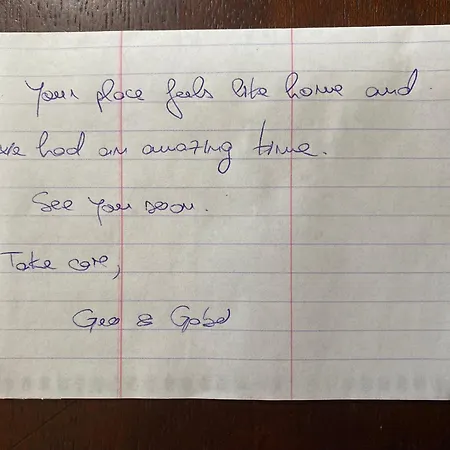 Your place feels like home and
we had an amazing time.
See you soon.
Take care,
Geo &